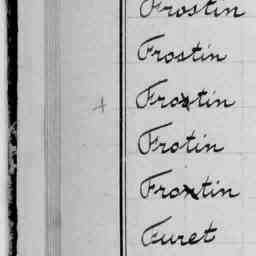 Frostin
Frostin
+ Frostin
Frotin
Frostin
Furet